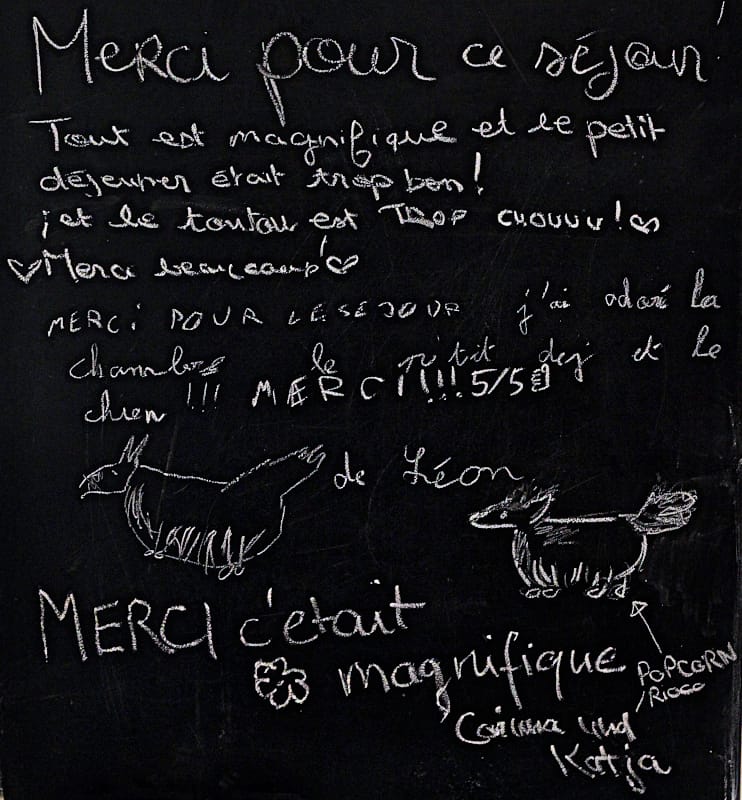 Merci pour ce séjour !
Tout est magnifique et le petit
déjeuner était trop bon !
et le toutou est TROP CHOUUU ! ♡
♡ Merci beaucoup ! ♡
MERCI POUR LE SEJOUR j'ai adoré la
chambre le p'tit dej et le
chien !!! MERCI !!! 5/5
de Léon
MERCI c'était
magnifique
POPCORN
Corinna und
Katja